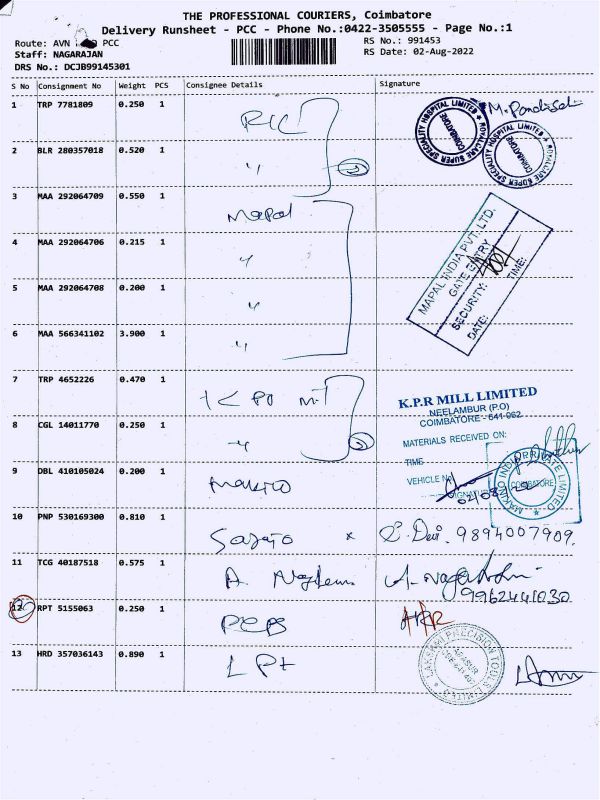 THE PROFESSIONAL COURIERS, Coimbatore
Delivery Runsheet - PCC - Phone No.:0422-3505555 - Page No.:1
Route: AVN PCC
RS No.: 991453
Staff: NAGARAJAN
RS Date: 02-Aug-2022
DRS No.: DCJB99145301
S No Consignment No Weight PCS Consignee Details Signature
1 TRP 7781809 0.250 1
ROYALCARE SUPER SPECIALITY HOSPITAL LIMITED COIMBATORE
ROYALCARE SUPER SPECIALITY HOSPITAL LIMITED COIMBATORE
2 BLR 280357018 0.520 1 〃 2
3 MAA 292064709 0.550 1 Mapal
MAPAL INDIA PVT. LTD.
GATE ENTRY
SECURITY:
DATE: TIME:
4 MAA 292064706 0.215 1 〃
5 MAA 292064708 0.200 1 〃
6 MAA 566341102 3.900 1 〃
7 TRP 4652226 0.470 1
K.P.R MILL LIMITED
NEELAMBUR (P.O)
COIMBATORE - 641 062
MATERIALS RECEIVED ON:
TIME
VEHICLE No
8 CGL 14011770 0.250 1 〃 2
9 DBL 410105024 0.200 1 Makino
MAKINO INDIA PRIVATE LIMITED COIMBATORE
10 PNP 530169300 0.810 1 x Devi. 9894007909.
11 TCG 40187518 0.575 1 A.
9962441030
12 RPT 5155063 0.250 1
13 HRD 357036143 0.890 1 LPT
LAKSHMI PRECISION TOOLS LIMITED